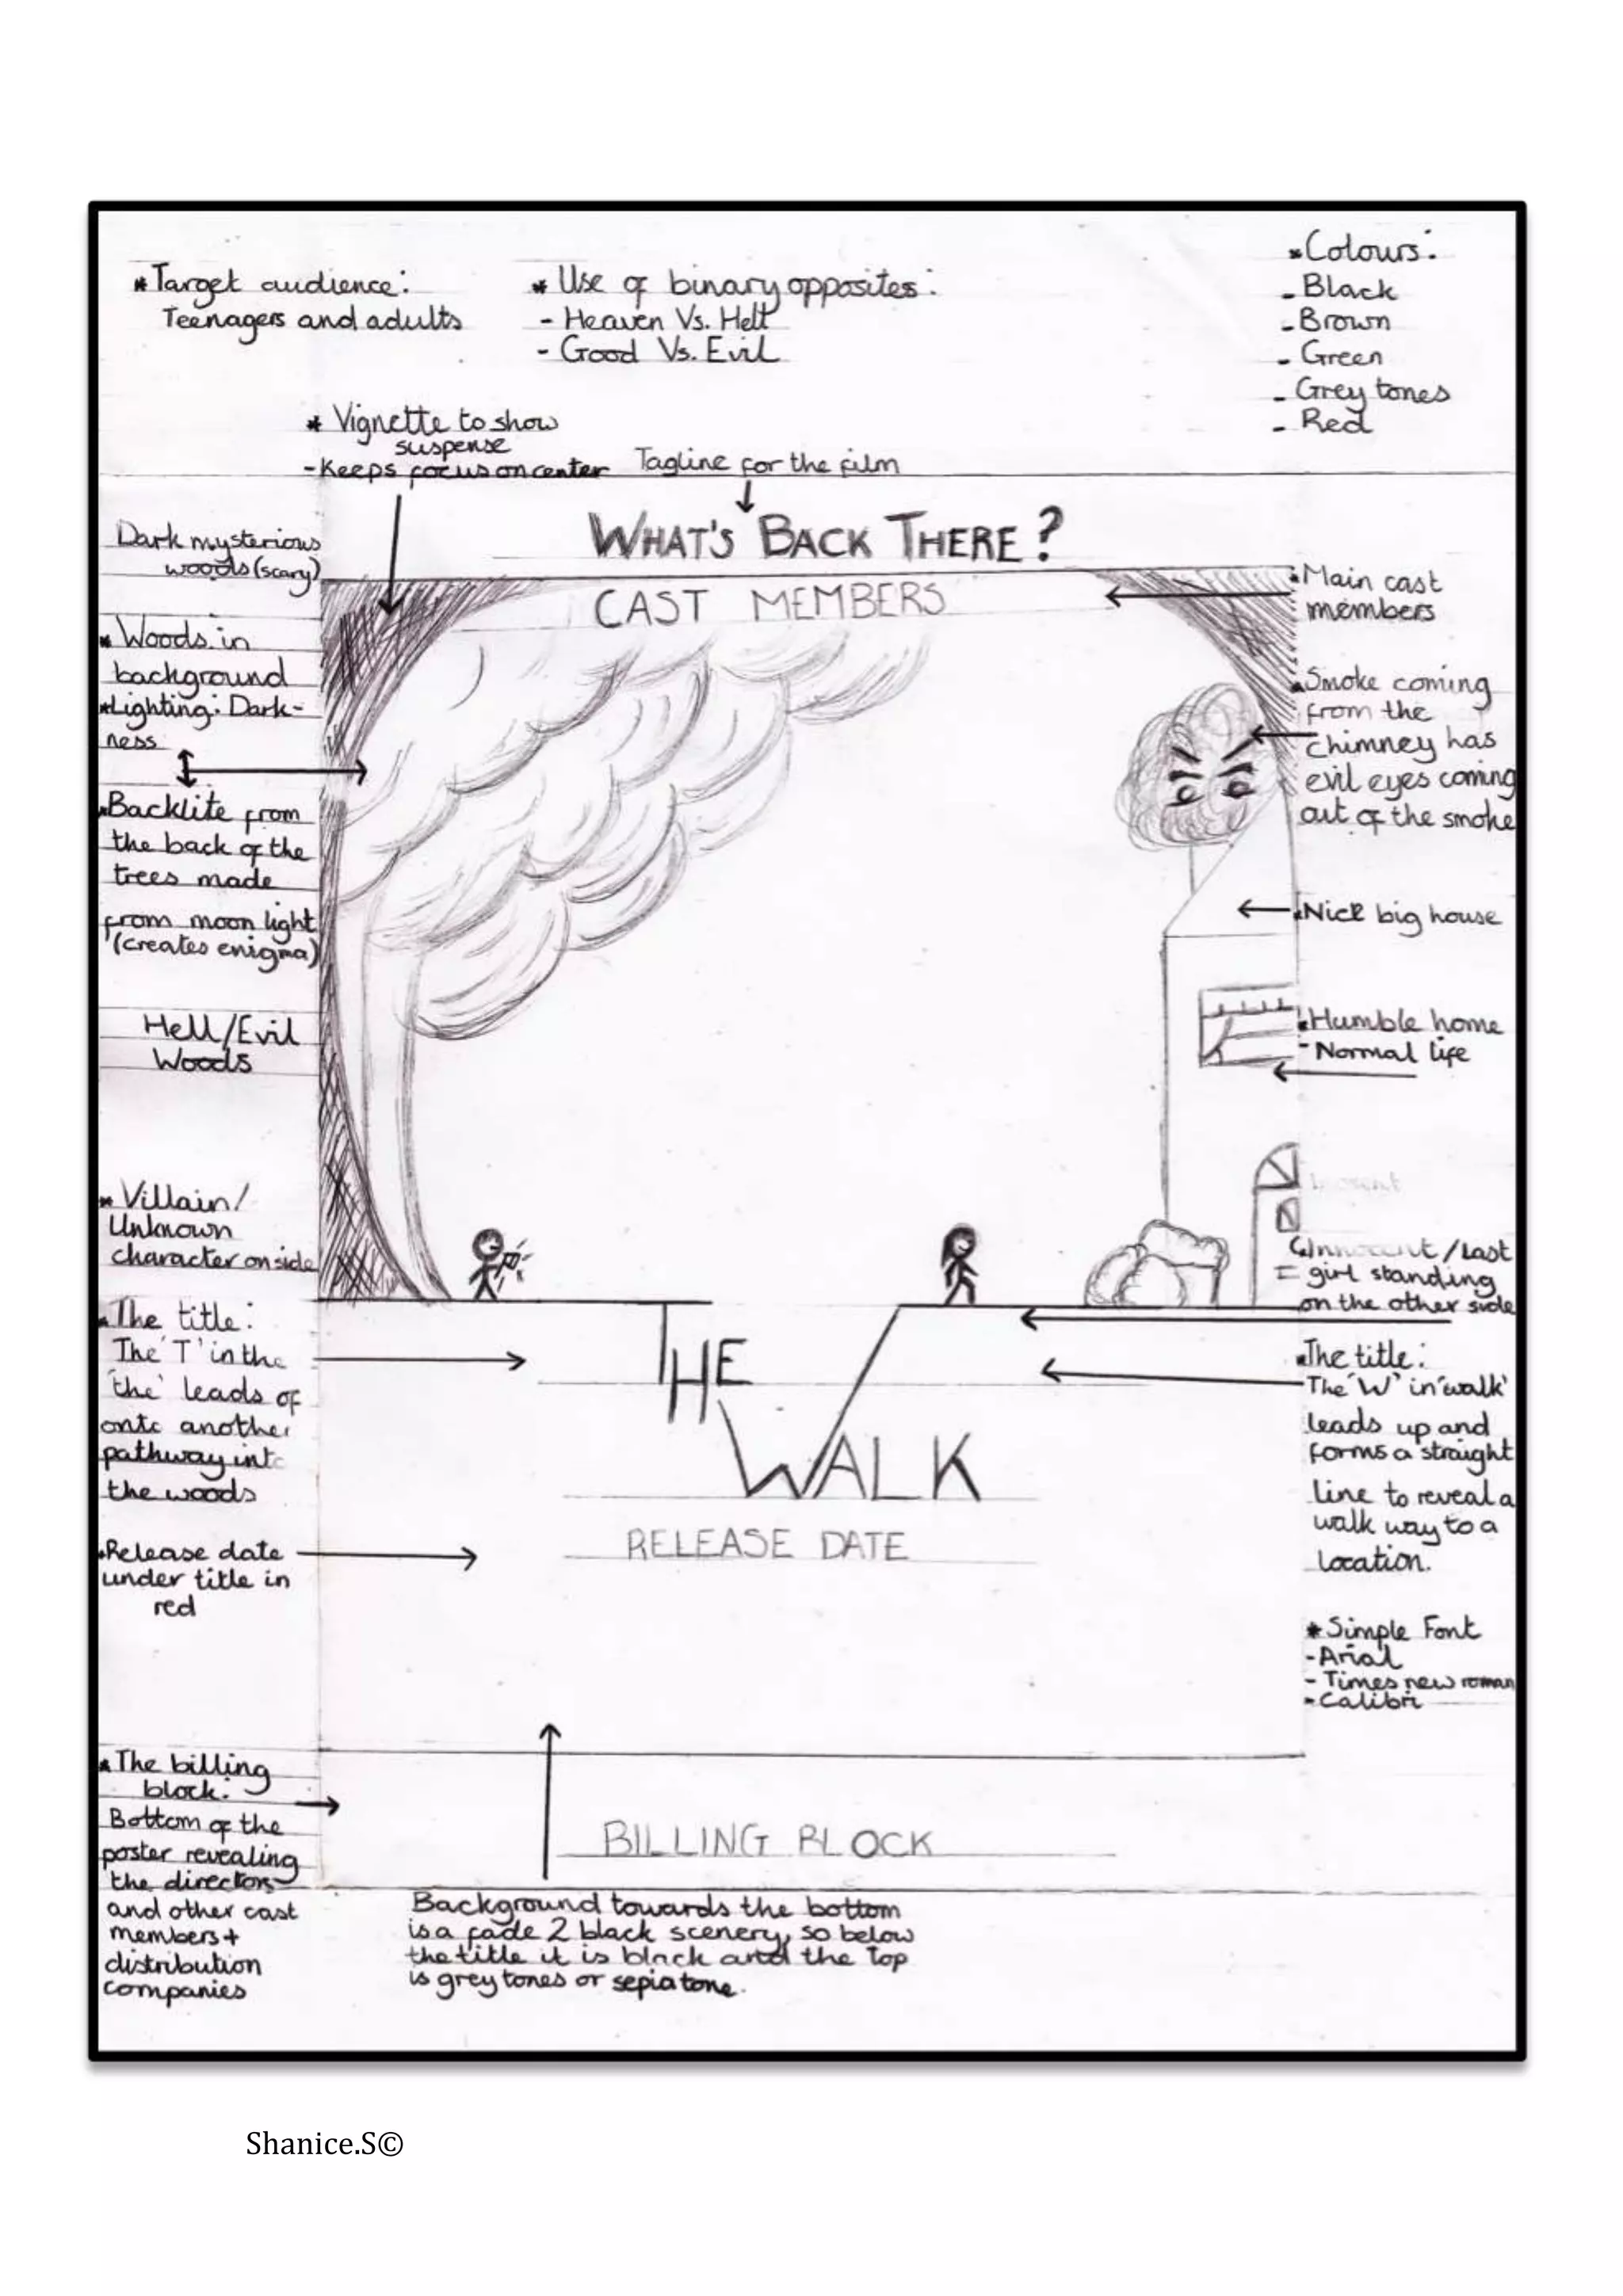 *Target audience:
Teenagers and adults
* Use of binary opposites:
- Heaven Vs. Hell
- Good Vs. Evil
*Colours:
- Black
- Brown
- Green
- Grey tones
- Red
* Vignette to show
suspense
- Keeps focus on center
Tagline for the film
WHAT'S BACK THERE?
CAST MEMBERS
Dark mysterious
woods (scary)
* Woods in
background
*Lighting: Dark-
ness
*Backlite from
the back of the
trees made
from moon light
(creates enigma)
Hell/Evil
Woods
* Villain/
Unknown
character on side
*The title:
The 'T' in the
'the' leads of
onto another
pathway into
the woods
*Release date
under title in
red
*The billing
block:
Bottom of the
poster revealing
the directors
and other cast
members +
distribution
companies
*Main cast
members
*Smoke coming
from the
chimney has
evil eyes coming
out of the smoke
*Nice big house
*Humble home
- Normal life
Innocent / Last
girl standing
on the other side
*The title:
The 'W' in 'walk'
leads up and
forms a straight
line to reveal a
walk way to a
location.
*Simple Font
- Arial
- Times new roman
- Calibri
THE
WALK
RELEASE DATE
BILLING BLOCK
Background towards the bottom
is a fade 2 black scenery, so below
the title it is black and the top
is grey tones or sepia tone.
Shanice.S©